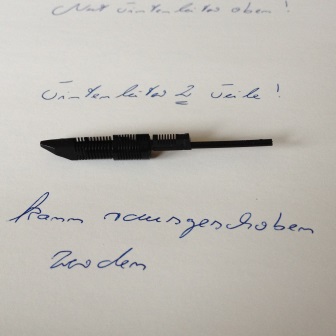 Nut Tintenleiter oben!
Tintenleiter 2 Teile!
kann rausgeschoben
werden